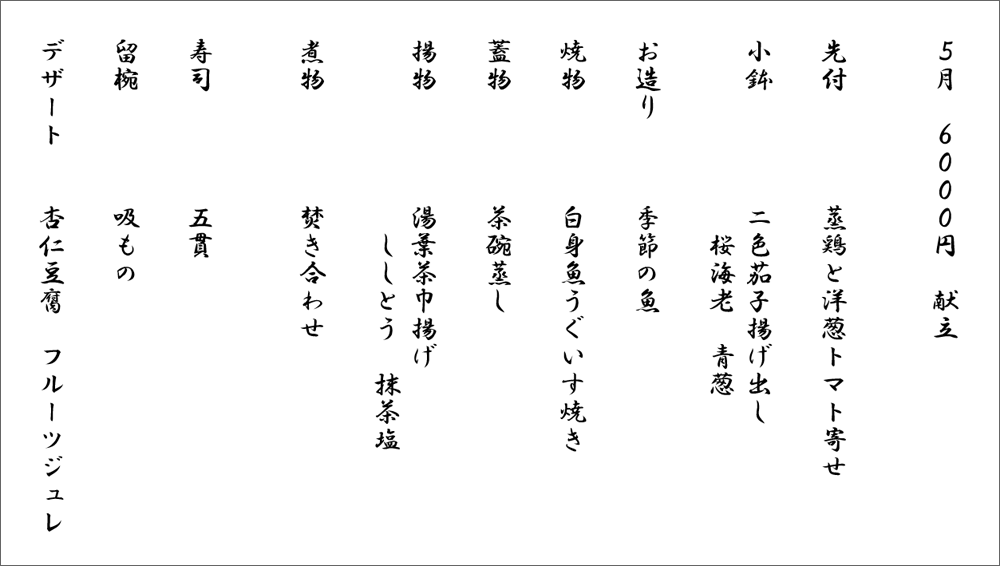 5月　6000円　献立
先付　蒸鶏と洋葱トマト寄せ
小鉢　二色茄子揚げ出し
桜海老　青葱
お造り　季節の魚
焼物　白身魚うぐいす焼き
蓋物　茶碗蒸し
揚物　湯葉茶巾揚げ
ししとう　抹茶塩
煮物　焚き合わせ
寿司　五貫
留椀　吸もの
デザート　杏仁豆腐　フルーツジュレ